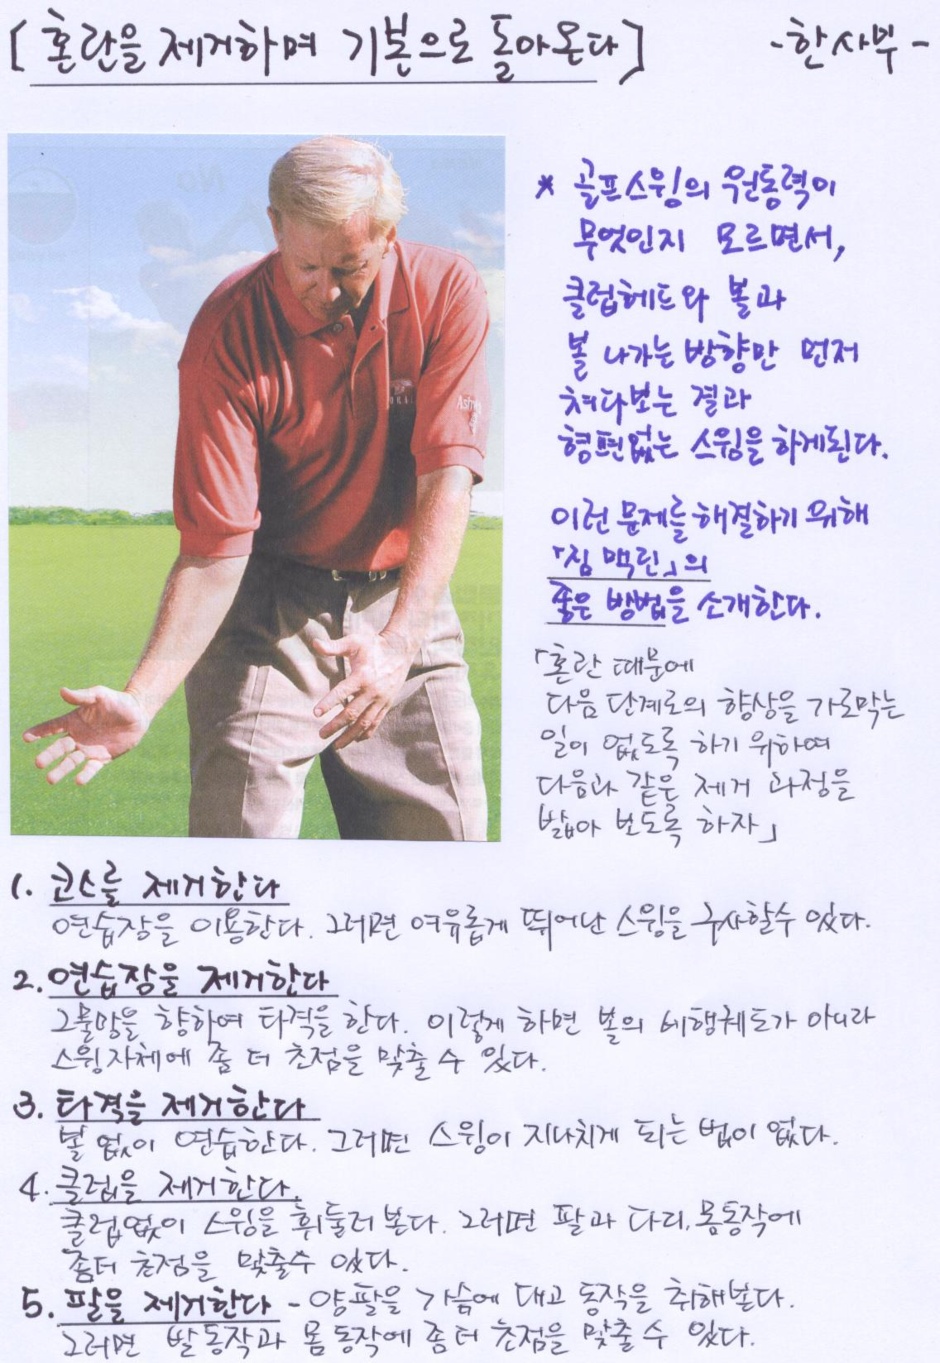 [혼란을 제거하며 기본으로 돌아온다]
-한사부-
* 골프스윙의 원동력이
무엇인지 모르면서,
클럽헤드와 볼과
볼 나가는 방향만 먼저
쳐다보는 결과
형편없는 스윙을 하게된다.
이런 문제를 해결하기 위해
「짐 맥린」의
좋은 방법을 소개한다.
「혼란 때문에
다음 단계로의 향상을 가로막는
일이 없도록 하기 위하여
다음과 같은 제거 과정을
밟아 보도록 하자」
1. 코스를 제거한다
연습장을 이용한다. 그러면 여유롭게 뛰어난 스윙을 구사할수 있다.
2. 연습장을 제거한다
그물망을 향하여 타격을 한다. 이렇게 하면 볼의 비행궤도가 아니라
스윙자체에 좀 더 초점을 맞출 수 있다.
3. 타격을 제거한다
볼 없이 연습한다. 그러면 스윙이 지나치게 되는 법이 없다.
4. 클럽을 제거한다.
클럽없이 스윙을 휘둘러 본다. 그러면 팔과 다리, 몸동작에
좀더 초점을 맞출수 있다.
5. 팔을 제거한다 - 양팔을 가슴에 대고 동작을 취해본다.
그러면 발동작과 몸동작에 좀더 초점을 맞출 수 있다.